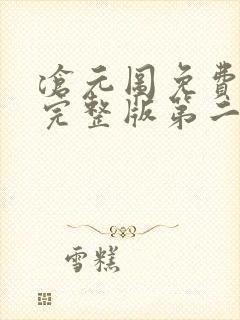 滄元图免費
完整版第二
雪糕